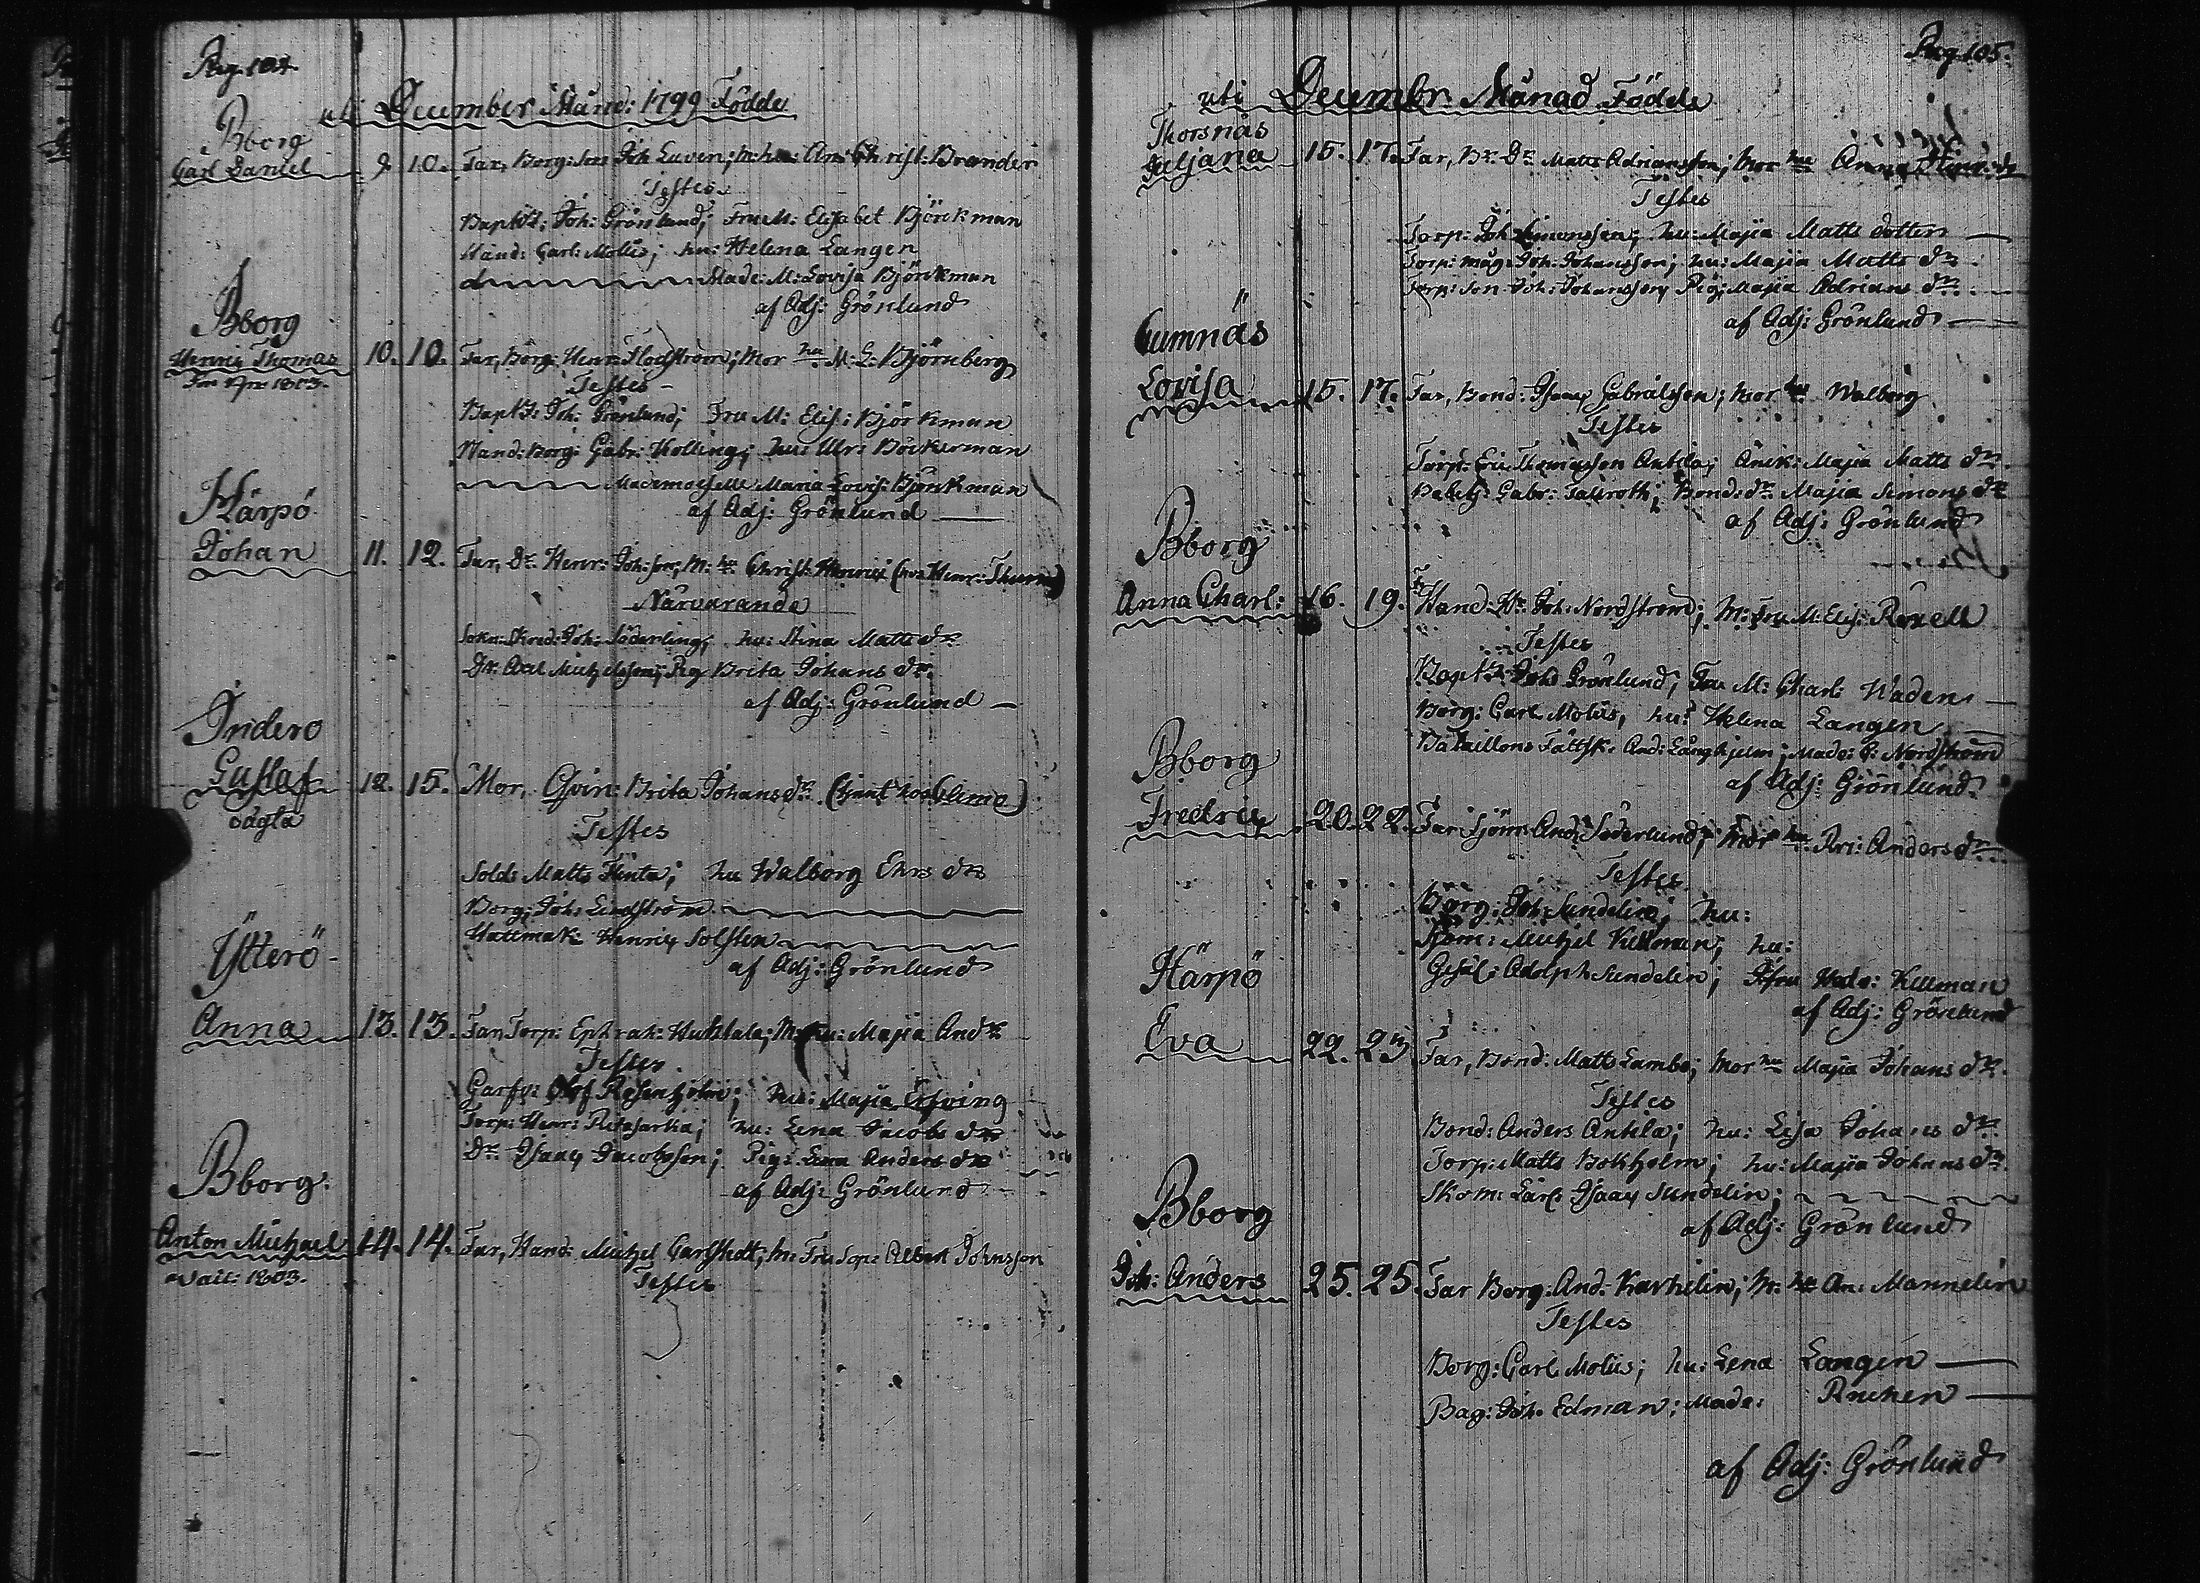 Pag. 104
uti December Månad: 1799 Födde
Bborg
Carl Daniel 9 10. Far, Borg: Son Joh Luven; M: hu: An: Christ: Brander
Testes
Joh: Grönlund; Fru M: Elisabet Björkman
Hand: Carl: Molliis; hu: Helena Langen
Made: M: Lovisa Björkman
af Adj: Grönlund
Bborg
Henric Thomas 10. 10. Far, Borg: Henr: Flodström; Mor hu M: E: Björnberg
1803.
Testes
Joh: Grönlund; Fru M: Elis: Björkman
Hand: Borg: Gabr: Holling; hu: Ulr: Böckerman
Mademoiselle Maria Lovis: Björkman
af Adj: Grönlund
Härpö
Johan 11. 12. Far, Dr. Henr: Joh: son; M: hu Christ: Henrici (hos Henr: Thurn)
Närvarande
Joh: Söderling; hu: Stina Matts dr
Dr. Axel Michelsson; Pig Brita Johans dr.
af Adj: Grönlund
Indero
Gustaf 12. 15. Mor, Qvin: Brita Johans dr.
oägta
Testes
Sold: Matts Flinta; hu Walborg Ehrs dr
Borg: Joh: Lindström
Hattmak: Henric Solsten
af Adj: Grönlund
Ytterö
Anna 13. 13. Far Torp: Ephrai: Huhtala; M: hu: Majia And dr
Testes
Garfv: Olof Rosenholm; hu: Majia Erfving
Torp: Henr: Ritasarka; hu: Lena Jacobs dr
Dr. Isaac Jacobsson; Pig: Lena Anders dr
af Adj: Grönlund
Bborg:
Anton Michael 14. 14. Far, Hand: Michel Carlstedt; M: Fru Sop: Albert: Johnsson
1803.
Testes
Pag. 105.
uti Decembr. Månad Födde
Thorsnäs
Juljana 15. 17. Far, Br. Dr Matts Adriansson; Mor hu Anna
Testes
Torp: Joh Simonsson; hu: Majia Matts dotter
Torp: måg: Joh: Johansson; hu: Majia Matts dr
Torp: Son Joh: Johansson; Pig: Majia Adrians dr.
af Adj: Grönlund
Cumnäs
Lovisa 15. 17. Far, Bond: Isaac Gabrielsson; Mor hu Walborg
Testes
Torp: Eric Thomasson Antila; Änk: Majia Matts dr.
Gabr: Tallroth; Bond: dr Majia Simons dr
af Adj: Grönlund
Bborg
Anna Charl: 16. 19. Hand: Joh: Nordström; M: Fru M: Elis: Roxell
Testes
Joh: Grönlund; Fru M: Charl: Waden
Borg: Carl Moliis, hu: Helena Langen
Bataillons Fältsk: And: Långhjelm; Made: C: Nordström
af Adj: Grönlund.
Bborg
Fredric 20. 22. Far Sjöm: And: Söderlund; Mor hu Bri: Anders dr.
Testes
Borg: Joh: Sundelin; hu:
Sjöm: Michel Killman; hu:
Gesäl: Adolph Sundelin; Jfru Heds: Killman
af Adj: Grönlund
Härpö
Eva 22. 23 Far, Bond: Matts Lambo; Mor hu Majia Johans dr.
Testes
Bond: Anders Antila; hu: Lisa Johans dr
Torp: Matts Bokholm; hu: Majia Johans dr
Skom: Lärl: Isaac Sundelin;
af Adj: Grönlund
Bborg
Joh: Anders 25. 25. Far Borg: And: Karhelin; M: hu An: Mannelin
Testes
Borg: Carl Moliis; hu: Lena Langen
Bag: Joh. Edman; Made:
af Adj: Grönlund